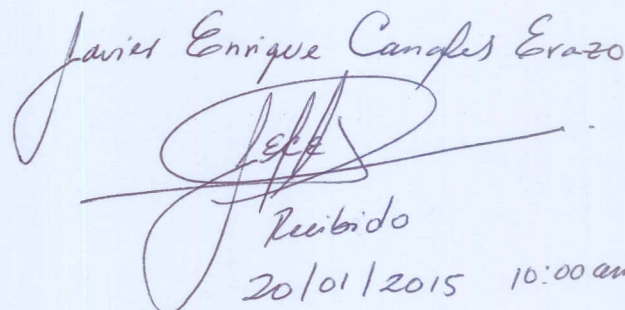 Javier Enrique Canales Erazo
JECE
Recibido
20/01/2015 10:00 am